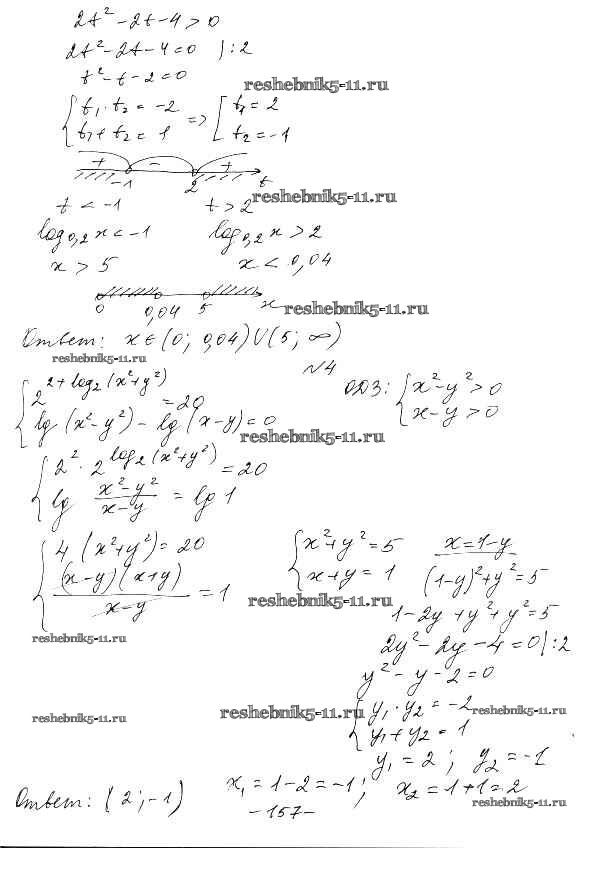 2t² - 2t - 4 > 0
2t² - 2t - 4 = 0 | : 2
t² - t - 2 = 0
reshebnik5-11.ru
{ t₁ · t₂ = -2
t₁ + t₂ = 1 => [ t₁ = 2
t₂ = -1
+ - +
-1 2 t
reshebnik5-11.ru
t < -1 t > 2
log₀,₂ x < -1 log₀,₂ x > 2
x > 5 x < 0,04
0 0,04 5 x
reshebnik5-11.ru
Ответ: x ∈ (0; 0,04) ∪ (5; ∞)
reshebnik5-11.ru
№4
{ 2^(2 + log₂(x² + y²)) = 20
lg (x² - y²) - lg (x - y) = 0
ОДЗ: { x² - y² > 0
x - y > 0
reshebnik5-11.ru
{ 2² · 2^(log₂(x² + y²)) = 20
lg (x² - y²)/(x - y) = lg 1
{ 4 (x² + y²) = 20
(x - y)(x + y)/(x - y) = 1
{ x² + y² = 5
x + y = 1
x = 1 - y
(1 - y)² + y² = 5
reshebnik5-11.ru
1 - 2y + y² + y² = 5
reshebnik5-11.ru
2y² - 2y - 4 = 0 | : 2
y² - y - 2 = 0
{ y₁ · y₂ = -2
y₁ + y₂ = 1
reshebnik5-11.ru
reshebnik5-11.ru
reshebnik5-11.ru
y₁ = 2; y₂ = -1
x₁ = 1 - 2 = -1; x₂ = 1 + 1 = 2
Ответ: (2; -1)
reshebnik5-11.ru
-157-